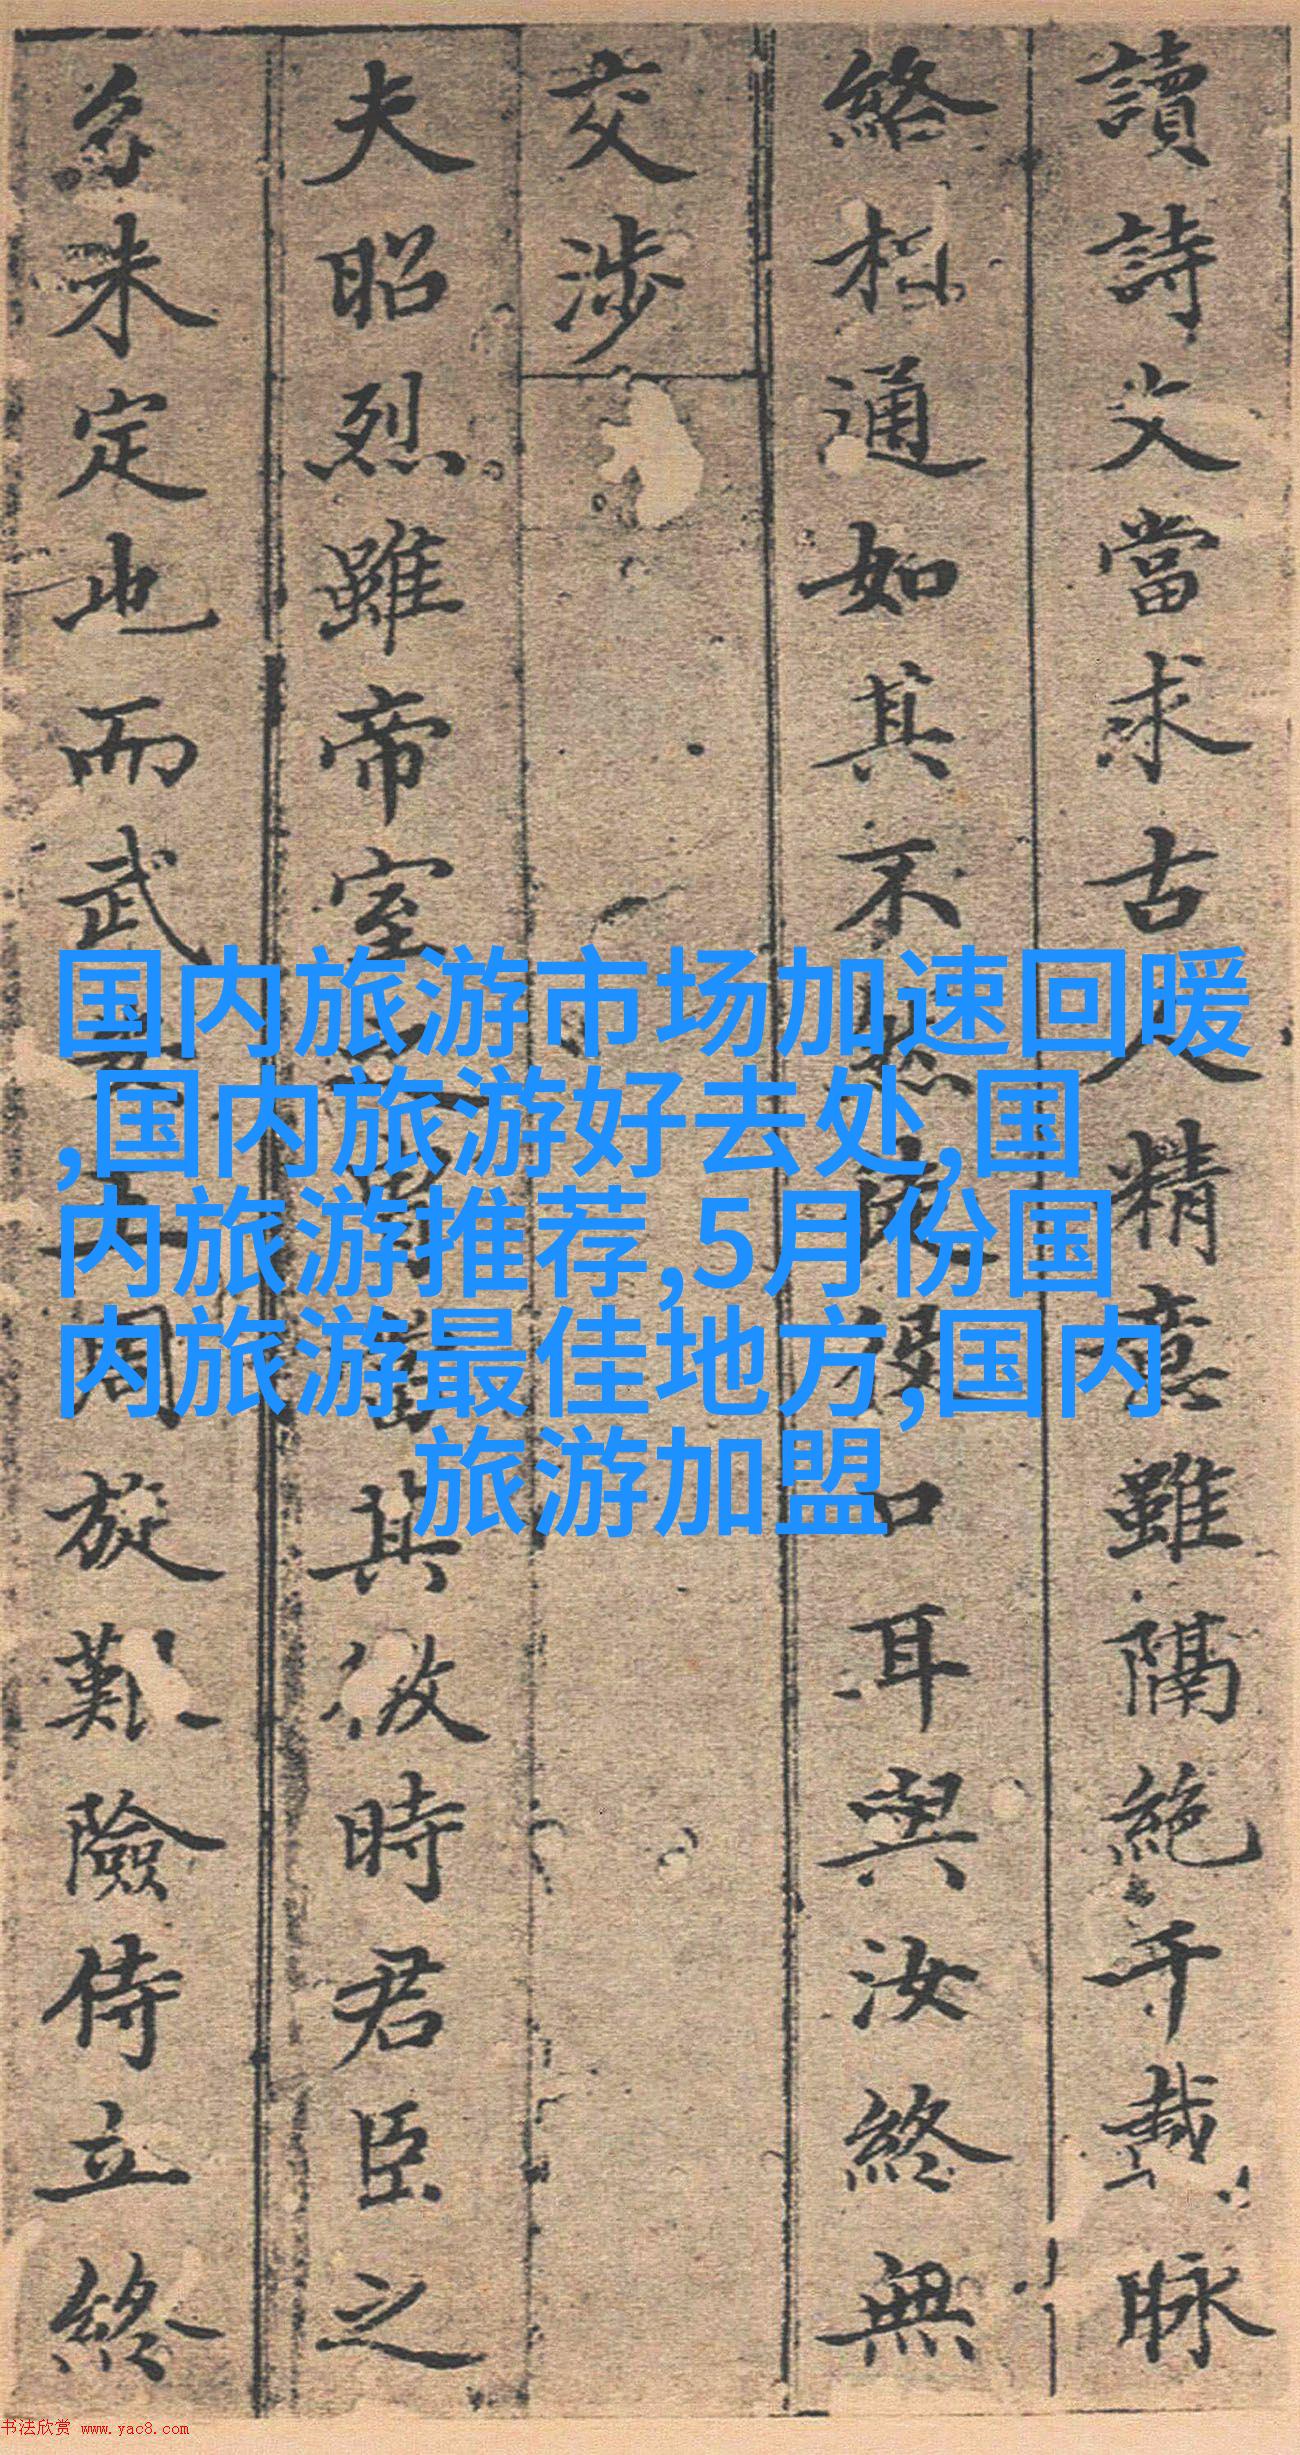 讀詩文當求古人精意雖隔絶千載脉
絡相通如其不然㡳便口耳與汝終無
交涉
夫昭烈雖帝室之胄當其微時君臣之
名未定也而武一周旋艱險侍立終
国内旅游市场加速回暖
,国内旅游好去处,国
内旅游推荐,5月份国
内旅游最佳地方,国内
旅游加盟
书法欣赏 www.yac8.com